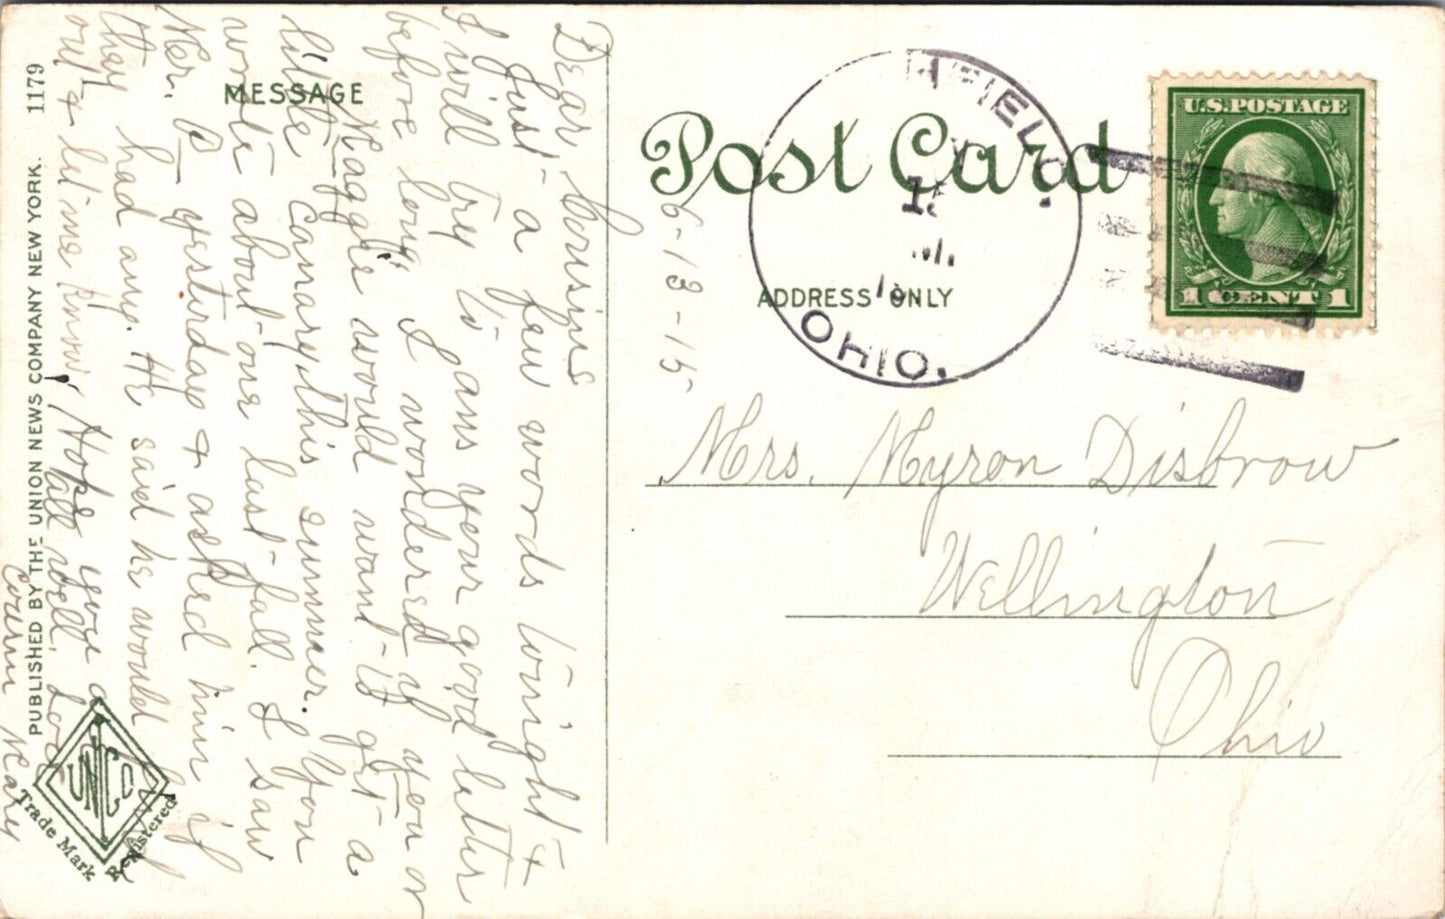 PUBLISHED BY THE UNION NEWS COMPANY NEW YORK.
1179
MESSAGE
Dear Cousins
Just a few words tonight &
I will try to ans your good letter
before long. I wondered if you or
Maggie would want to get a
little Canary this summer. You
wrote about one last fall. I saw
Mer. P— yesterday & asked him if
they had any. He said he would
out & let me know. Hope you a
all well. Love
Cousin Mary
UNCO
Trade Mark Registered
Post Card
ADDRESS ONLY
HFIELD.
OHIO.
6-13-15
U.S.POSTAGE
1 CENT 1
Mrs. Myron Disbrow
Wellington
Ohio